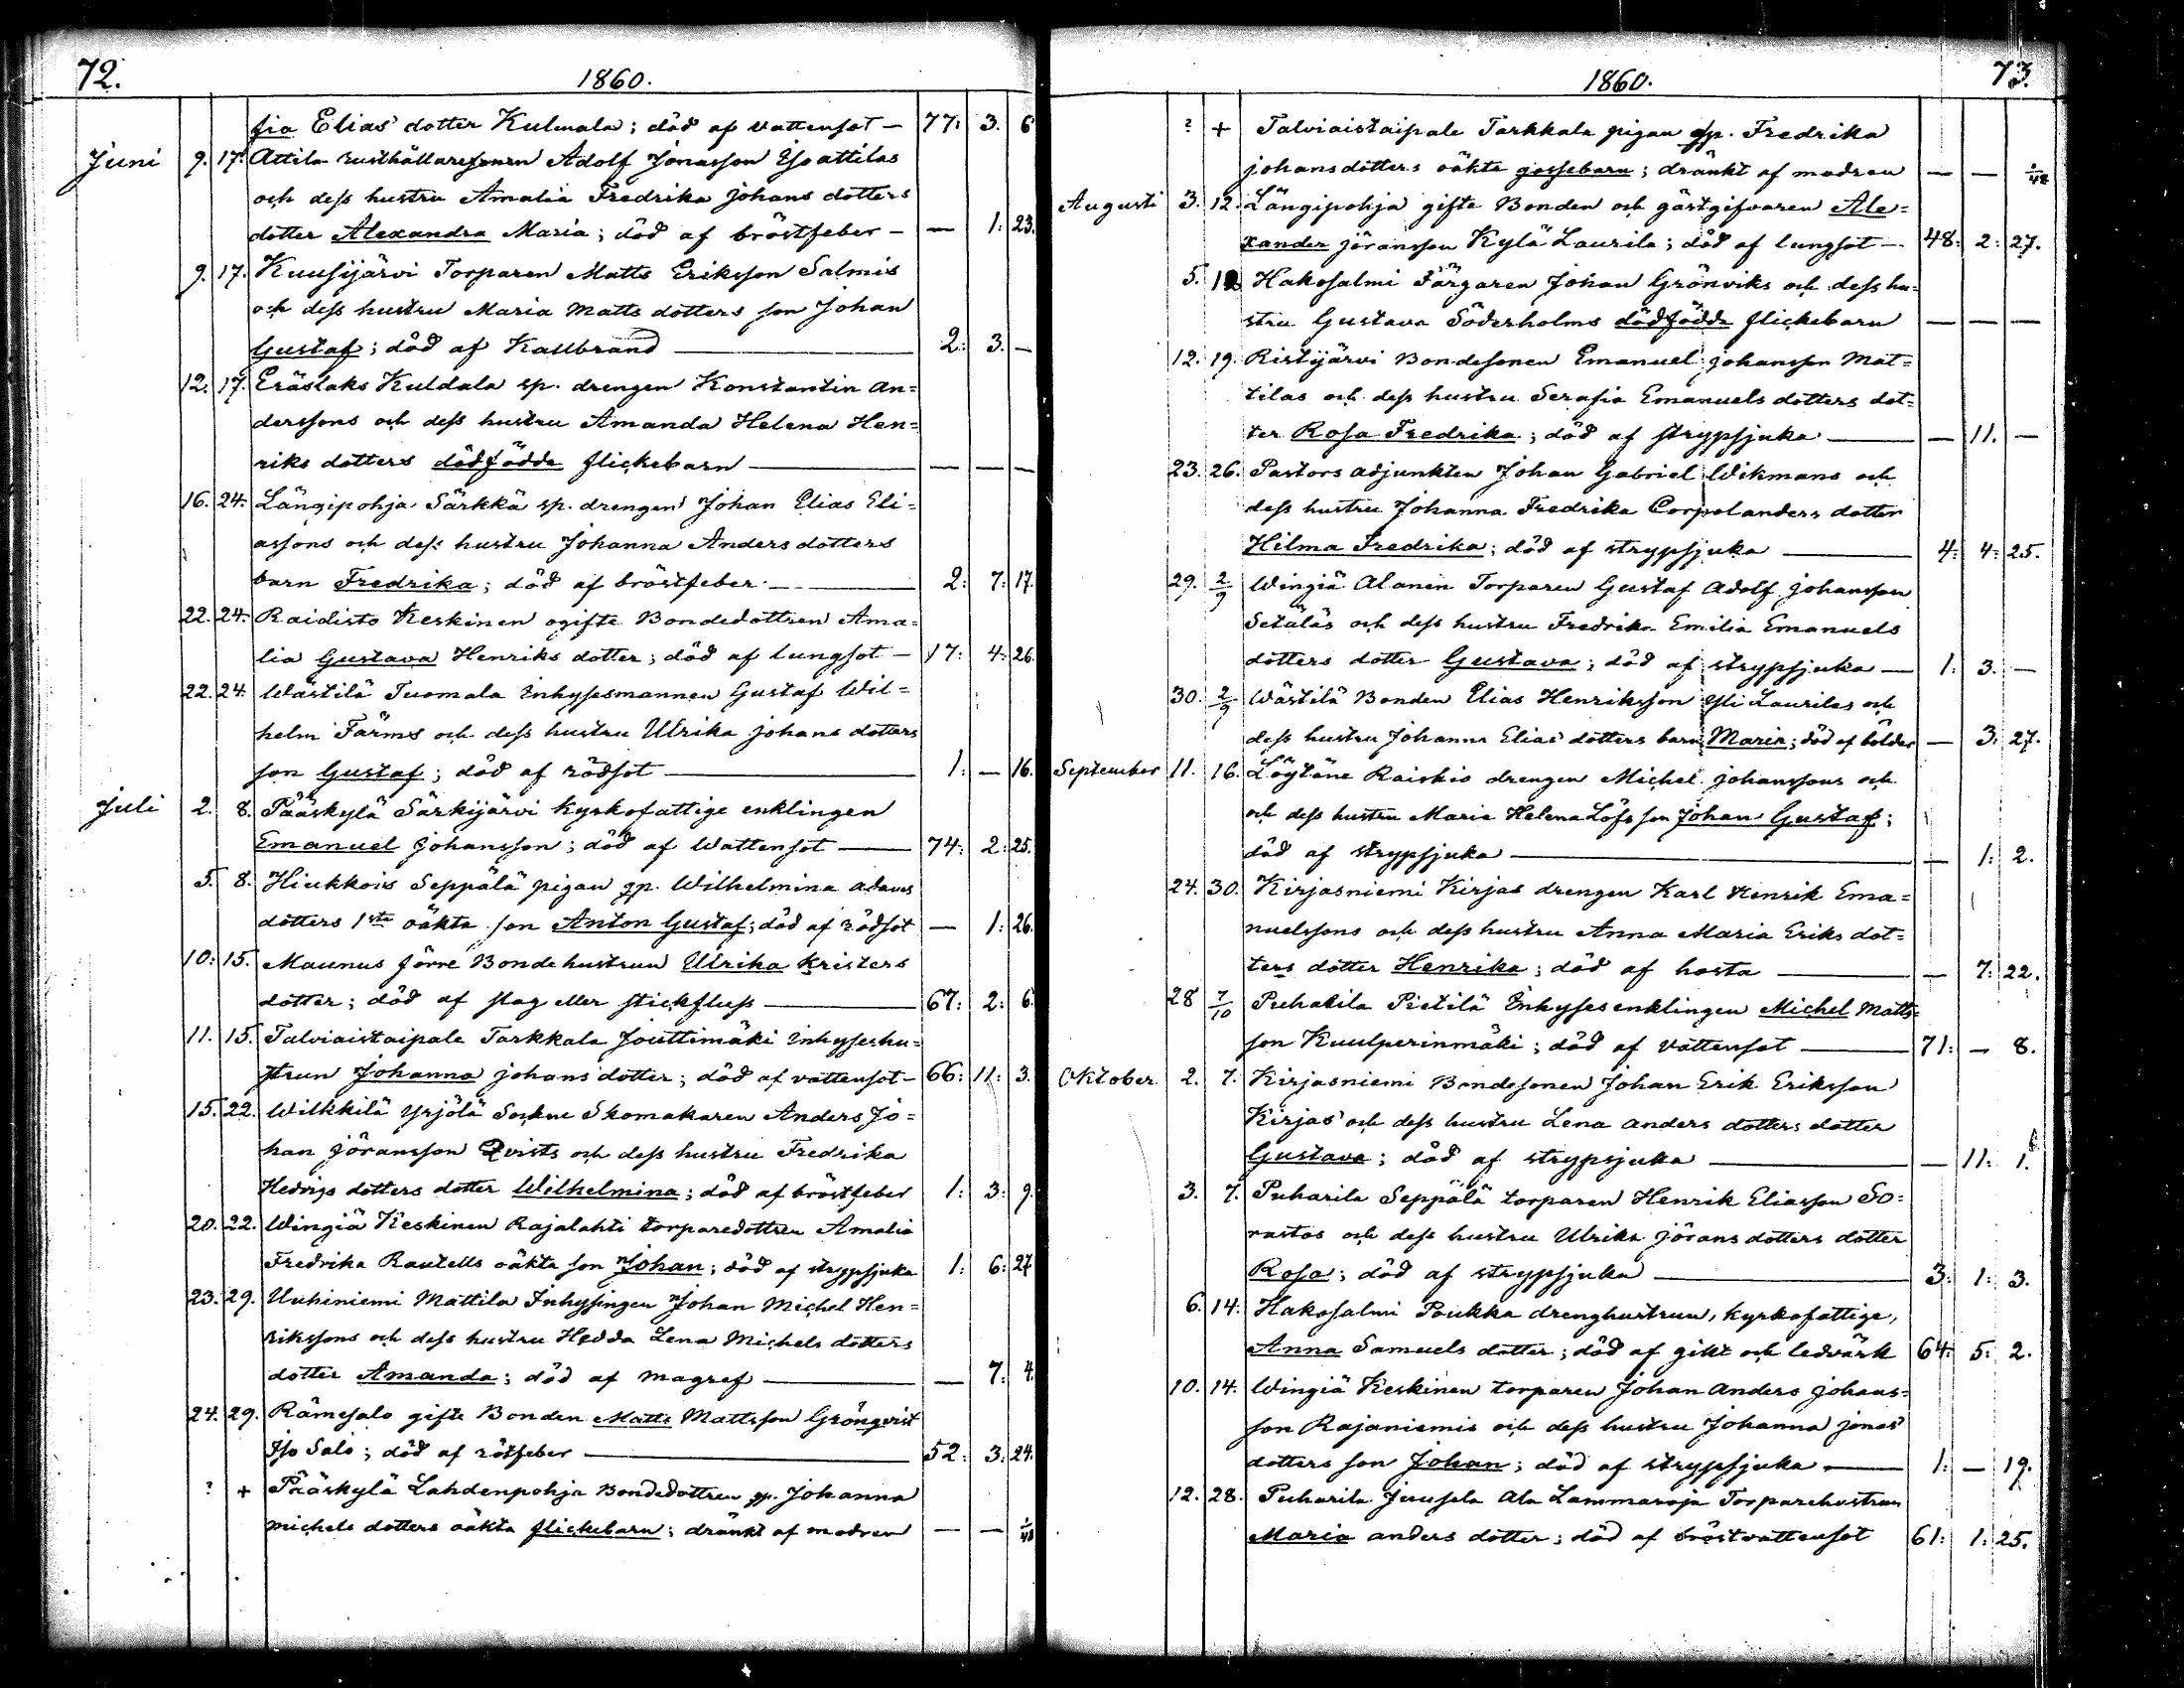 72.
1860.
fia Elias dotter Kulmala; död af vattensot — 77: 3. 6
Juni 9. 17. Attila rusthållaresonen Adolf Jonasson Isoattilas
och dess hustru Amalia Fredrika Johans dotters
dotter Alexandra Maria; död af bröstfeber — — 1: 23.
9. 17. Kuusijärvi Torparen Matts Eriksson Salmis
och dess hustru Maria Matts dotters son Johan
Gustaf; död af Kallbrand — 2: 3. —
12. 17. Eräslaks Kuldala sp. drengen Konstantin An=
derssons och dess hustru Amanda Helena Hen=
riks dotters dödfödde flickebarn — — — —
16. 24. Längipohja Särkkä sp. drengen Johan Elias Eli=
assons och dess hustru Johanna Anders dotters
barn Fredrika; död af bröstfeber — 2: 7: 17.
22. 24. Raidisto Keskinen ogifte Bondedottren Ama=
lia Gustava Henriks dotter; död af lungsot — 17: 4: 26.
22. 24. Wästilä Tuomala Inhysesmannen Gustaf Wil=
helm Färms och dess hustru Ulrika Johans dotters
son Gustaf; död af rödsot — 1: — 16.
Juli 2. 8. Pääskylä Särkijärvi kyrkofattige enklingen
Emanuel Johansson; död af Wattensot — 74: 2: 25.
5. 8. Hiukkois Seppälä pigan gp. Wilhelmina Adams
dotters 1sta oäkta son Anton Gustaf; död af rödsot — 1: 26.
10: 15. Maunus Jörre Bondehustrun Ulrika Kristers
dotter; död af slag eller stickfluss — 67: 2: 6
11. 15. Talviaistaipale Tarkkala Jouttimäki Inhyseshu=
strun Johanna Johans dotter; död af vattensot — 66: 11: 3.
15. 22. Wilkkilä Yrjölä Sockne Skomakaren Anders Jo=
han Jöransson Qvists och dess hustru Fredrika
Hedvigs dotters dotter Wilhelmina; död af bröstfeber 1: 3: 9.
20. 22. Wingiä Keskinen Rajalahti torparedottren Amalia
Fredrika Rautells oäkta son Johan; död af strypsjuka 1: 6: 27
23. 29. Uuhiniemi Mattila Inhysingen Johan Michel Hen=
rikssons och dess hustru Hedda Lena Michels dotters
dotter Amanda; död af magref — — 7: 4.
24. 29. Rämesalo gifte Bonden Matts Mattsson Grönqvist
Iso Salo; död af rötfeber — 52: 3: 24.
? + Pääskylä Lahdenpohja Bondedottren gp. Johanna
Michels dotters oäkta flickebarn; dränkt af modren — — 1/48
73.
1860.
? + Talviaistaipale Tarkkala pigan gp. Fredrika
Johansdotters oäkta gossebarn; dränkt af modren — — 1/48
Augusti 3. 12. Längipohja gifte Bonden och gästgifvaren Ale=
xander Jöransson Kylä Laurila; död af lungsot — 48: 2: 27.
5. Hakosalmi Färgaren Johan Grönviks och dess hu=
stru Gustava Söderholms dödfödde flickebarn — — —
12. 19. Ristijärvi Bondesonen Emanuel Johansson Mat=
tilas och dess hustru Serafia Emanuels dotters dot=
ter Rosa Fredrika; död af strypsjuka — — 11. —
23. 26. Pastors adjunkten Johan Gabriel Wikmans och
dess hustru Johanna Fredrika Corpolanders dotter
Hilma Fredrika; död af strypsjuka — 4: 4: 25.
29. 2/9 Wingiä Alanen Torparen Gustaf Adolf Johansson
Setäläs och dess hustru Fredrika Emilia Emanuels
dotters dotter Gustava; död af strypsjuka — 1: 3. —
30. 2/9 Wästilä Bonden Elias Henriksson Yli Laurilas och
dess hustru Johanna Elias dotters barn Maria; död af bölder — 3: 27.
September 11. 16. Löytäne Raiskio drengen Michel Johanssons och
och dess hustru Maria Helena Löfs son Johan Gustaf;
död af strypsjuka — — 1: 2.
24. 30. Kirjasniemi Kirjas drengen Karl Henrik Ema=
nuelssons och dess hustru Anna Maria Eriks dot=
ters dotter Henrika; död af hosta — — 7: 22.
28 7/10 Puharila Pietilä Inhysesenklingen Michel Matts=
son Kuulperinmäki; död af vattensot — 71: — 8.
Oktober 2. 7. Kirjasniemi Bondesonen Johan Erik Eriksson
Kirjas och dess hustru Lena Anders dotters dotter
Gustava; död af strypsjuka — — 11: 1.
3. 7. Puharila Seppälä torparen Henrik Eliasson So=
rastos och dess hustru Ulrika Jörans dotters dotter
Rosa; död af strypsjuka — 3: 1: 3.
6. 14. Hakosalmi Poukka drenghustrun, kyrkofattige,
Anna Samuels dotter; död af gikt och ledvärk 64: 5: 2.
10. 14. Wingiä Keskinen torparen Johan Anders Johans=
son Rajaniemis och dess hustru Johanna Jonas
dotters son Johan; död af strypsjuka — 1: — 19.
12. 28. Puharila Juusela Ala Lammasoja Torparehustrun
Maria Anders dotter; död af bröstvattensot 61: 1: 25.